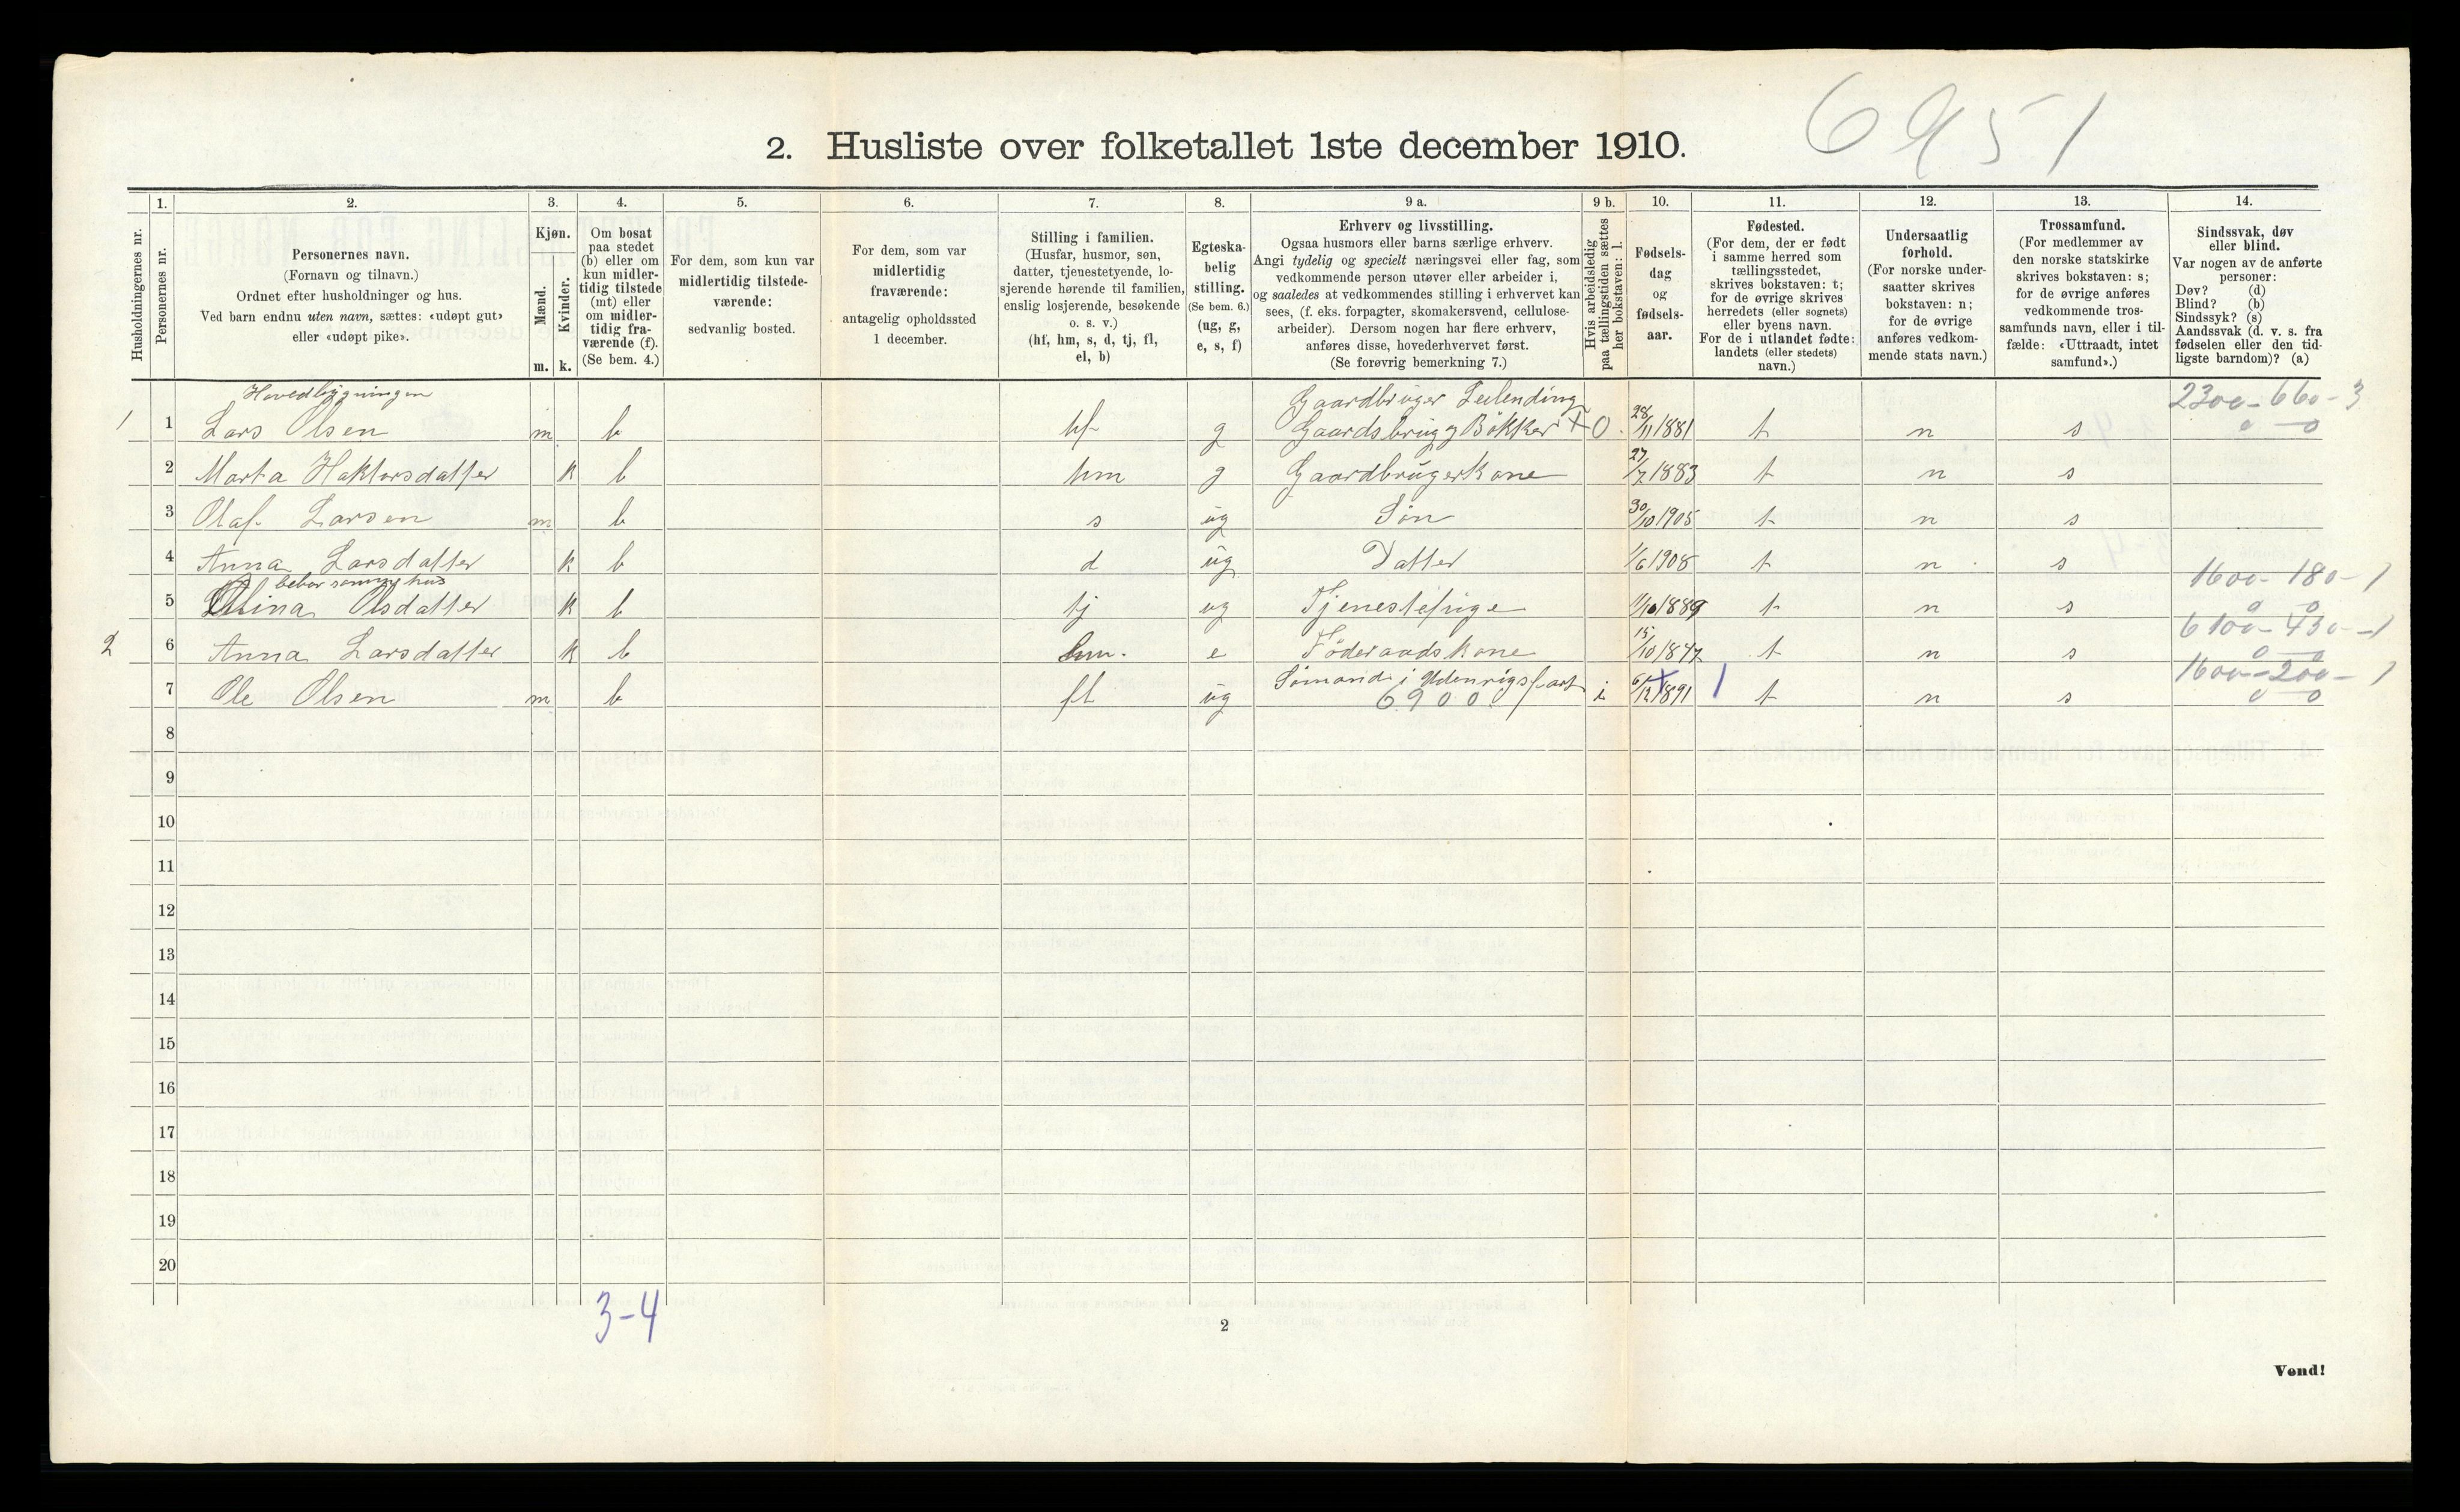 6951
2. Husliste over folketallet 1ste december 1910.
Husholdningernes nr.
1. Personernes nr.
2. Personernes navn.
(Fornavn og tilnavn.)
Ordnet efter husholdninger og hus.
Ved barn endnu uten navn, sættes: «udøpt gut»
eller «udøpt pike».
3. Kjøn.
Mænd. Kvinder.
m. k.
4. Om bosat
paa stedet
(b) eller om
kun midler-
tidig tilstede
(mt) eller
om midler-
tidig fra-
værende (f).
(Se bem. 4.)
5. For dem, som kun var
midlertidig tilstede-
værende:
sedvanlig bosted.
6. For dem, som var
midlertidig
fraværende:
antagelig opholdssted
1 december.
7. Stilling i familien.
(Husfar, husmor, søn,
datter, tjenestetyende, lo-
sjerende hørende til familien,
enslig losjerende, besøkende
o. s. v.)
(hf, hm, s, d, tj, fl,
el, b)
8. Egteska-
belig
stilling.
(Se bem. 6.)
(ug, g,
e, s, f)
9 a. Erhverv og livsstilling.
Ogsaa husmors eller barns særlige erhverv.
Angi tydelig og specielt næringsvei eller fag, som
vedkommende person utøver eller arbeider i,
og saaledes at vedkommendes stilling i erhvervet kan
sees, (f. eks. forpagter, skomakersvend, cellulose-
arbeider). Dersom nogen har flere erhverv,
anføres disse, hovederhvervet først.
(Se forøvrig bemerkning 7.)
9 b. Hvis arbeidsledig
paa tællingstiden sættes
her bokstaven: l.
10. Fødsels-
dag
og
fødsels-
aar.
11. Fødested.
(For dem, der er født
i samme herred som
tællingsstedet,
skrives bokstaven: t;
for de øvrige skrives
herredets (eller sognets)
eller byens navn.
For de i utlandet fødte:
landets (eller stedets)
navn.)
12. Undersaatlig
forhold.
(For norske under-
saatter skrives
bokstaven: n;
for de øvrige
anføres vedkom-
mende stats navn.)
13. Trossamfund.
(For medlemmer av
den norske statskirke
skrives bokstaven: s;
for de øvrige anføres
vedkommende tros-
samfunds navn, eller i til-
fælde: «Uttraadt, intet
samfund».)
14. Sindssvak, døv
eller blind.
Var nogen av de anførte
personer:
Døv? (d)
Blind? (b)
Sindssyk? (s)
Aandssvak (d. v. s. fra
fødselen eller den tid-
ligste barndom)? (a)
Hovedbygningen Gaardbruger Leilending 2300-660-3
1 1 Lars Olsen m b hf g Gaardsbrug & Bökker + O 28/11 1881 t n s 0 0
2 Marta Haktorsdatter k b hm g Gaardbrugerkone 27/7 1883 t n s
3 Olaf Larsen m b s ug Sön 30/10 1905 t n s
4 Anna Larsdatter k b d ug Datter 1/6 1908 t n s
bebor samme hus 1600-180-1
5 Olsdatter k b tj ug Tjenestepige 11/10 1889 t n s 0 0
6100-430-1
2 6 Anna Larsdatter k b hm. e Föderaadskone 15/10 1847 t n s 0 0
Sömand i Udenrigsfart 1600-200-1
7 Ole Olsen m b fl ug 6900 i 6/12 1891 t n s 0 0
8
9
10
11
12
13
14
15
16
17
18
19
20
3-4
2
Vend!